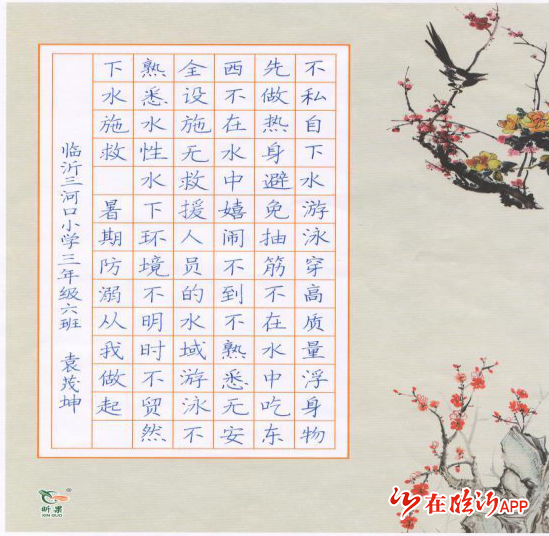 不私自下水游泳穿高质量浮身物
先做热身避免抽筋不在水中吃东
西不在水中嬉闹不到不熟悉无安
全设施无救援人员的水域游泳不
熟悉水性水下环境不明时不贸然
下水施救 暑期防溺从我做起
临沂三河口小学三年级六班 袁茂坤
昕果
XIN GUO
在临沂APP